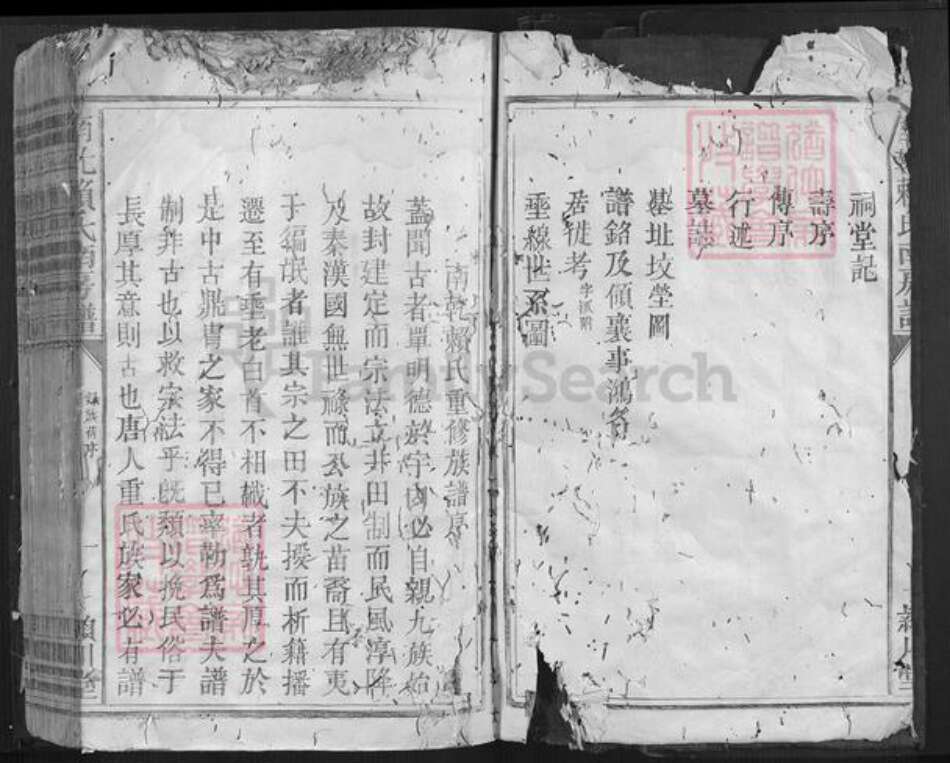 祠堂記
壽序
傳序
行述
墓誌
墓址坟塋圖
譜銘及傾襄事鴻名
居徙考字派附
垂線世系圖
南乾賴氏重修族譜序
蓋聞古者單明德於宇內必自親九族始
故封建定而宗法立井田制而民風淳降
及秦漢國無世祿而公族之苗裔且有夷
于編氓者誰其宗之田不夫授而析籍播
遷至有垂老白首不相識者孰其厚之於
是中古鼎胄之家不得已率勒爲譜夫譜
制非古也以救宗法乎旣頽以挽民俗于
長厚其意則古也唐人重氏族家必有譜
FamilySearch